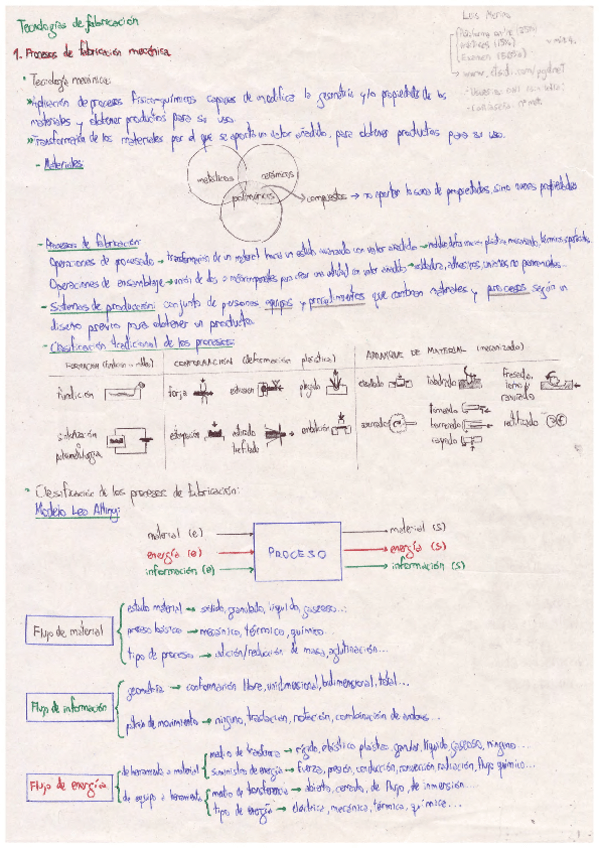 Tecnologías de fabricación
1. Procesos de fabricación mecánica
• Tecnología mecánica:
» Aplicación de procesos físico-químicos capaces de modificar la geometría y/o propiedades de los
materiales y obtener productos para su uso.
» Transformación de los materiales por el que se aporta un valor añadido, para obtener productos para su uso.
- Materiales:
metálicos
cerámicos
poliméricos
compuestos → no aportan la suma de propiedades, sino nuevas propiedades
- Procesos de fabricación:
Operaciones de procesado → transformación de un material hacia un estado avanzado con valor añadido →
Operaciones de ensamblaje → unión de dos o más para crear una con valor añadido → soldadura, adhesivos, uniones no permanentes...
- Sistemas de producción: conjunto de personas equipos y procedimientos que combinan materiales y procesos según un
diseño previo para obtener un producto.
- Clasificación tradicional de los procesos:
CONFORMACIÓN (deformación plástica)
ARRANQUE DE MATERIAL (mecanizado)
fundición
forja
extrusión
plegado
taladrado
fresado
torno
sinterización
o
pulvimetalurgia
estampación
estirado
trefilado
embutición
aserrado
torneado
rectificado
• Clasificación de los procesos de fabricación:
Modelo Leo Alting:
material (e)
energía (e)
información (e)
PROCESO
material (s)
energía (s)
información (s)
Flujo de material
estado material → sólido, granulado, líquido, gaseoso...
proceso básico → mecánico, térmico, químico...
tipo de proceso → adición/reducción de masa, aglutinación...
Flujo de información
geometría → conformación libre, unidimensional, bidimensional, total...
patrón de movimiento → ninguno, traslación, rotación, combinación de ambas...
Flujo de energía
de herramienta a material
medio de transferencia → rígido, elástico, plástico, granular, líquido, gaseoso, ninguno...
suministro de energía → fuerza, presión, conducción, convección, radiación, flujo químico...
de equipo a herramienta
medio de transferencia → abierto, cerrado, de flujo, de inmersión...
tipo de energía → eléctrica, mecánica, térmica, química...